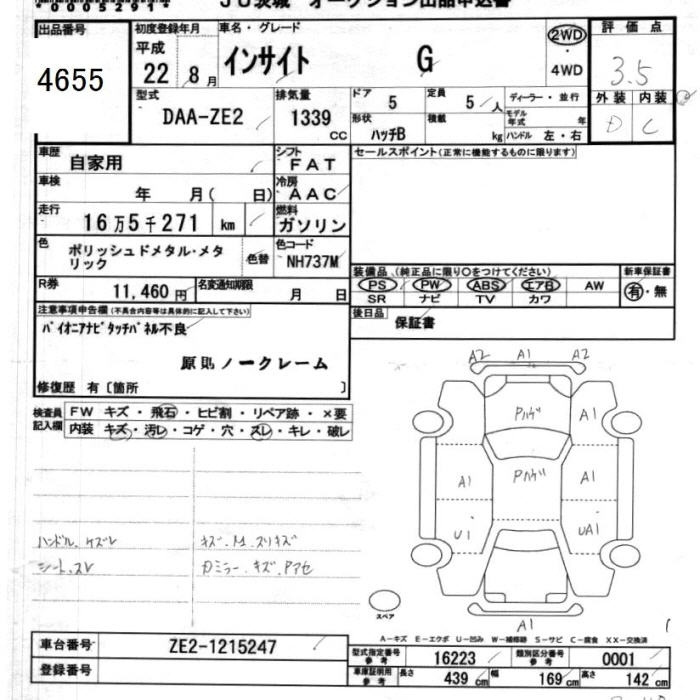 *0005291*
JU茨城 オークション出品申込書
出品番号
4655
初度登録年月
平成
22 8月
車名・グレード
インサイト G
2WD
・
4WD
評価点
3.5
外装 内装
D C
型式
DAA-ZE2
排気量
1339 cc
ドア 5
定員 5人
ディーラー・並行
形状 ハッチB
積載 kg
モデル年式 年
ハンドル 左・右
車歴 自家用
シフト FAT
セールスポイント(正常に機能するものに限ります)
車検 年 月( 日)
冷房 AAC
走行 16万5千271 km
燃料 ガソリン
色 ポリッシュドメタル・メタリック
色替
色コード NH737M
R券 11,460円
名変通知期限 月 日
装備品 (純正品に限り○をつけてください)
PS PW ABS エアB AW
SR ナビ TV カワ
新車保証書
有・無
後日品 保証書
注意事項申告欄(不具合内容等は具体的に記入して下さい)
パイオニアナビタッチパネル不良
原則ノークレーム
修復歴 有〔箇所 〕
検査員記入欄
FW キズ・飛石・ヒビ割・リペア跡・×要
内装 キズ・汚レ・コゲ・穴・スレ・キレ・破レ
A2 A1 A2
Pハゲ A1
A1 Pハゲ A1
U1 UA1
A1
ハンドル.ケズレ
シート.スレ
スペア
A−キズ E−エクボ U−凹み W−補修跡 S−サビ C−腐食 XX−交換済
車台番号 ZE2-1215247
登録番号
型式指定番号 参考 16223
類別区分番号 参考 0001
車庫証明用 参考 長さ 439 cm 幅 169 cm 高さ 142 cm